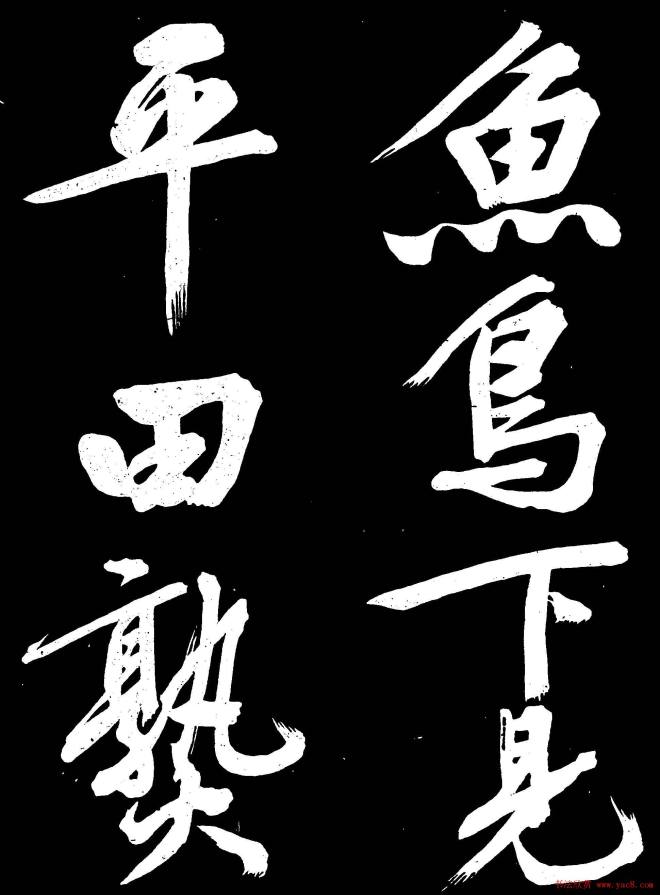 魚鳥下見
平田熟
书法欣赏 www.yac8.com